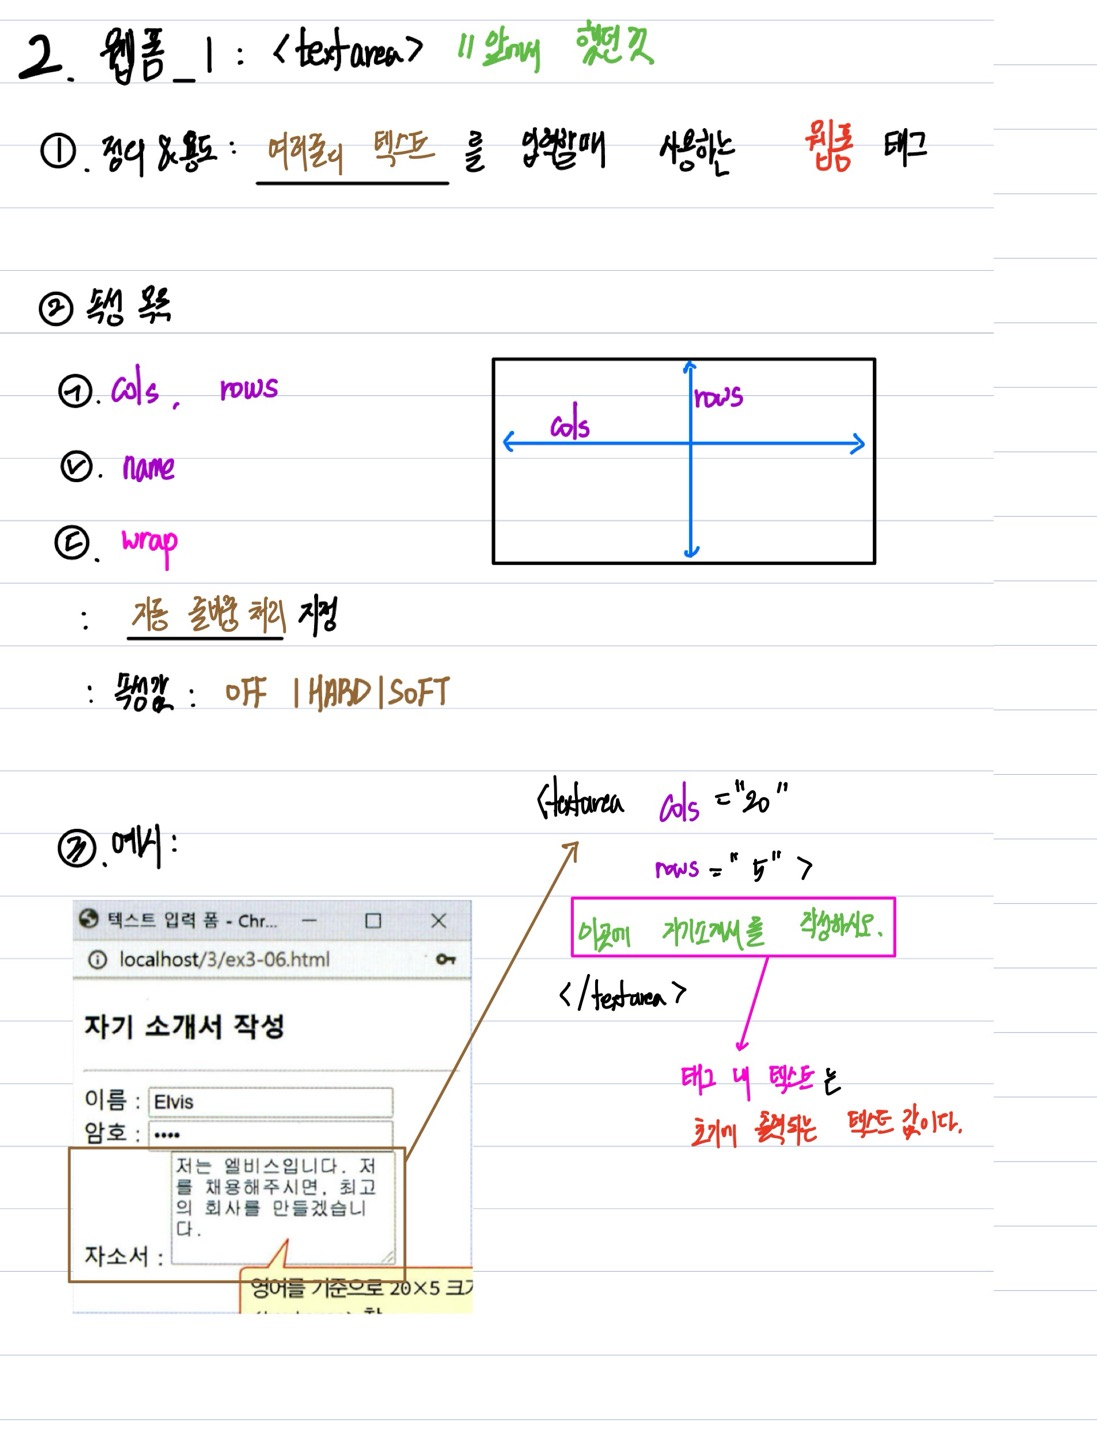 2. 웹폼_1 : <textarea> // 앞에서 했던것
①. 정의 &용도 : 여러줄의 텍스트 를 입력할때 사용하는 웹폼 태그
② 속성 목록
㉠. cols, rows
㉡. name
㉢. wrap
: 자동 줄바꿈 처리 지정
: 속성값 : OFF | HARD | SOFT
cols
rows
③. 예시 :
<textarea cols ="20"
rows =" 5" >
이곳에 자기소개서를 작성하시오.
</textarea>
태그 내 텍스트 는
초기에 출력되는 텍스트 값이다.
텍스트 입력 폼 - Chr...
localhost/3/ex3-06.html
자기 소개서 작성
이름 : Elvis
암호 : ••••
저는 엘비스입니다. 저
를 채용해주시면, 최고
의 회사를 만들겠습니
다.
자소서 :
영어를 기준으로 20×5 크기